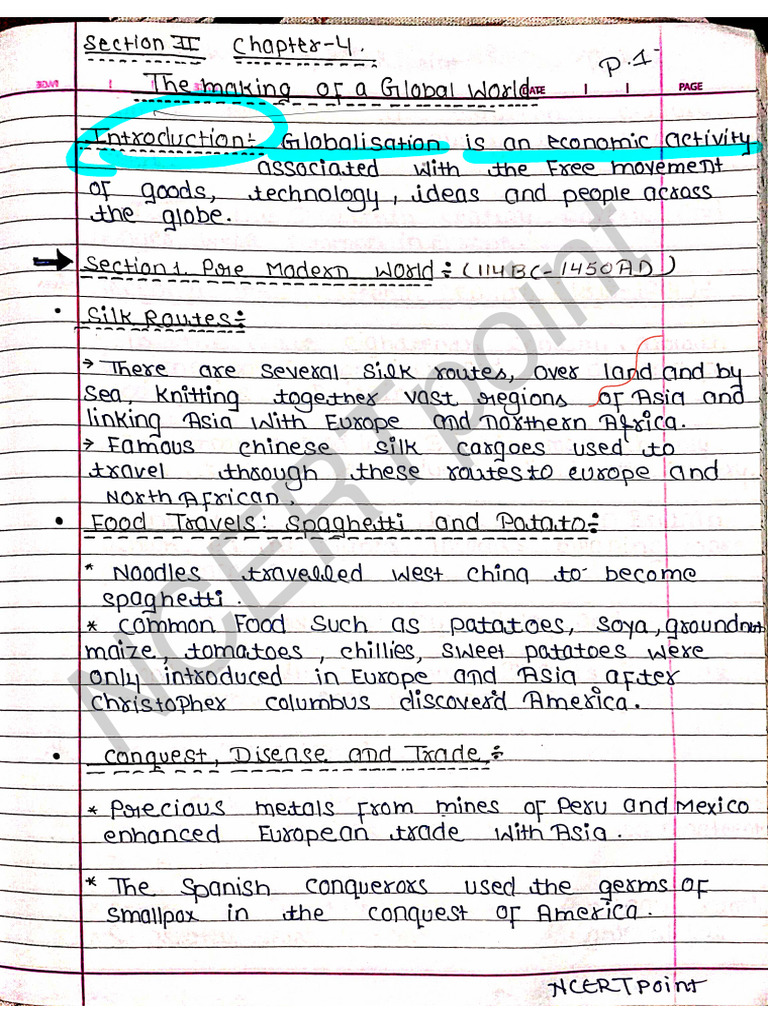 Section II Chapter-4.
P.1
The making of a Global World
DATE PAGE
Introduction:- Globalisation is an economic activity
associated with the Free movement
of goods, technology, ideas and people across
the globe.
Section 1. Pore Modern World:- (114BC-1450AD)
• Silk Routes:-
→ There are several silk routes, over land and by
sea, knitting together vast regions of Asia and
linking Asia with Europe and northern Africa.
→ Famous chinese silk cargoes used to
travel through these routes to europe and
North African.
• Food Travels: Spaghetti and Patato:-
* Noodles travelled west ching to become
spaghetti.
* Common Food such as patatoes, soya, groundnut
maize, tomatoes, chillies, sweet patatoes were
only introduced in Europe and Asia after
Christopher columbus discover'd America.
• Conquest, Disease and Trade:-
* Porecious metals from mines of Peru and Mexico
enhanced European trade with Asia.
* The Spanish conquerors used the germs of
smallpox in the conquest of America.
NCERTpoint
NCERTpoint